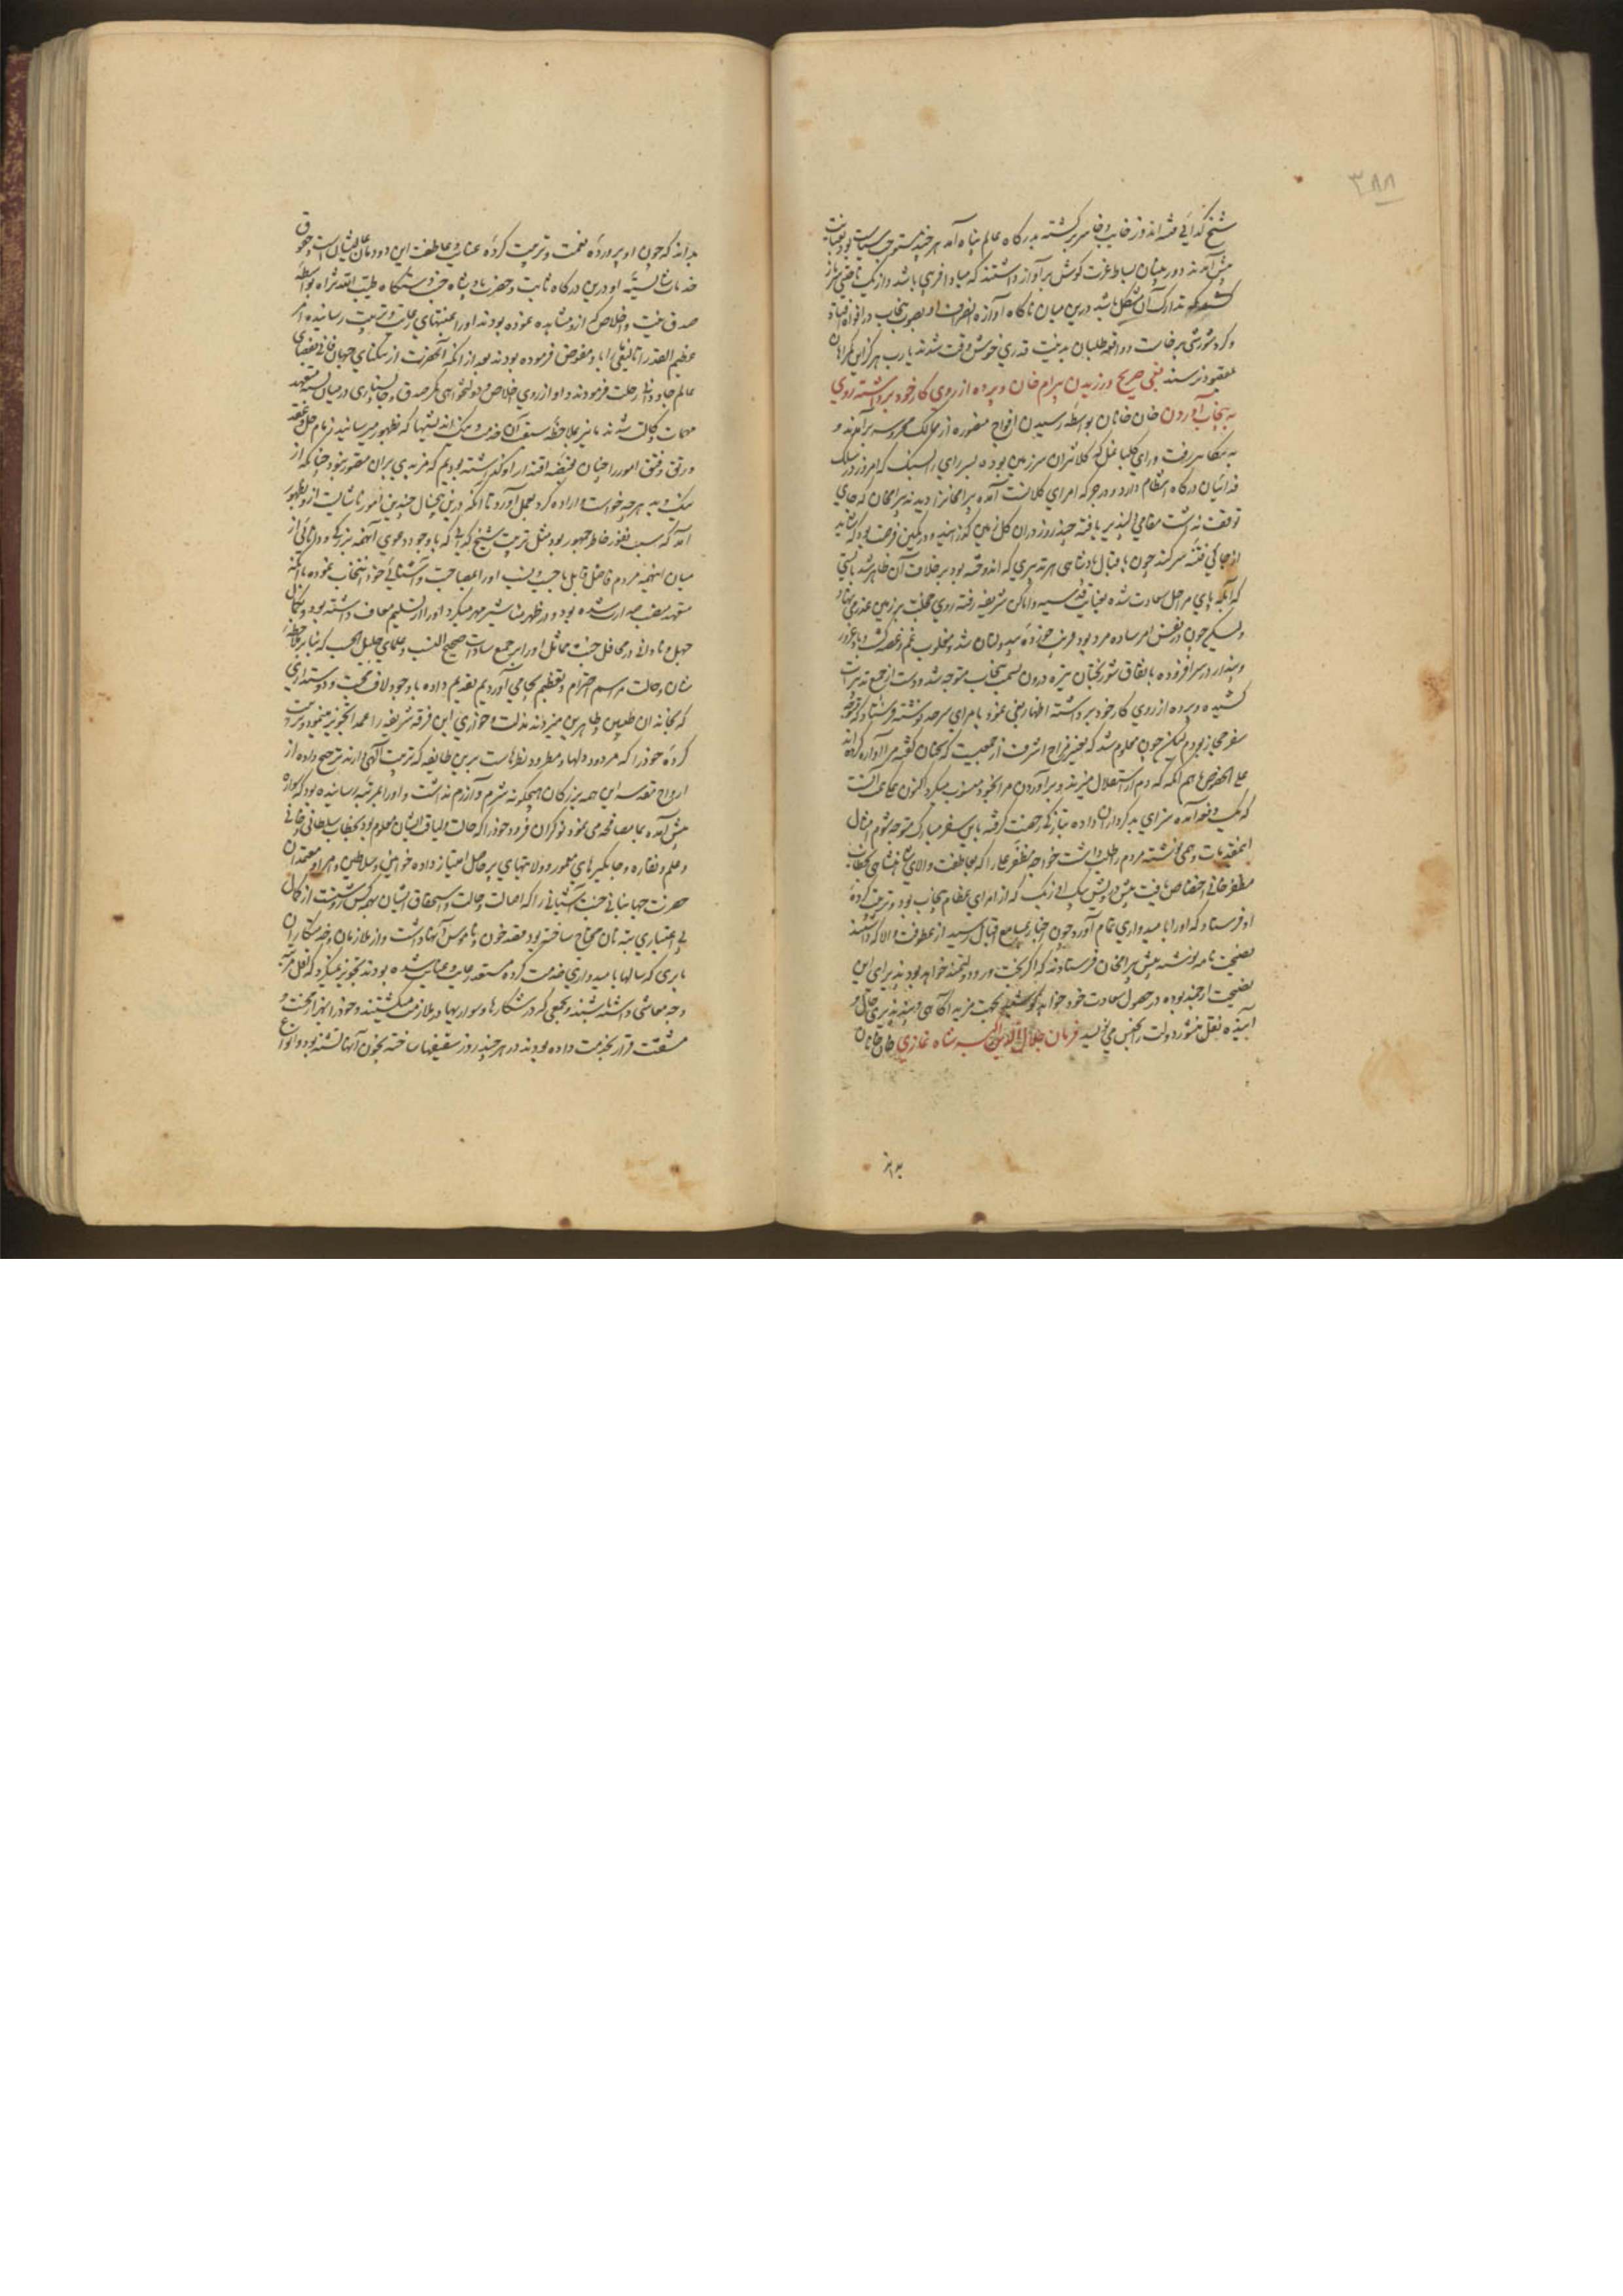 ۳۸۸
شیخ کدائی فتنه اندوز خایب و خاسر برکشته بدرکاه عالم پناه آمد هر چند مستوجب سیاست بود بعنایت
پیش آمدند و دوربینان بساط عزت کوش برآواز داشتند که مبادا فریبی باشد و از یک ناحیه سر باز
کشد که تدارک آن مشکل باشد درین میان ناکاه آوازه انصراف او بصوب پنجاب در افواه افتاد
و کرد شورشی برخاست و واقعه طلبان بدنیت قدری خوش وقت شدند یارب هرکز این کمراهان
بمقصود نرسند بغی صریح ورزیدن بیرام خان و پرده از روی کار خود برداشته روی
به پنجاب آوردن خان خانان بواسطه رسیدن افواج منصوره از ممالک محروسه برآمدند و
به بیکانیر رفت و رای کلیانمل که کلانتر آن سرزمین بوده پسر رای رایسنک که امروز در سلک
فدائیان درکاه انتظام دارد و در جرکه امرای کلانست آمده بیرامخانرا دیدند بیرامخان که جای
توقفت نداشت مقامی دلپذیر یافته چند روز در آن کل زمین کذرانید و در کمین فرصت بود که شاید
از جائی فتنه سر کند چون باقبال پادشاهی هر تدبیری که اندوخته بود برخلاف آن ظاهر شد بایستی
که آبله پای مراحل سعادت شده بعتبات قدسیه و اماکن شریفه رفته روی خجلت بر زمین عذر می نهاد
ولیکن چون در نفس امر ساده مرد بود فریب خورده بیدولتان شد و مغلوب غم و غصه کشت و باد غرور
و پندار در سر افزوده باتفاق شوربختان تیره درون بسمت پنجاب متوجه شد و دست از جمع تدبیرات
کشیده و پرده از روی کار خود برداشته اظهار بغی نمود بامرای سرحد نوشته فرستاد که متوجه
سفر حجاز بودم لیکن چون معلوم شد که تغییر مزاج اشرف از جمعیت که سخنان کفته مرا آواره کرده اند
علی الخصوص ماهم انکه که دم از استقلال میزند و برآوردن مرا بخود منسوب میکرد اکنون همکی همت آنست
که یک دفعه آمده سزای بدکرداران داده بتازکی رخصت کرفته باین سفر مبارک متوجه شوم امثال
این مقدمات وهمی نوشته مردم را طلب داشت خواجه مظفر علی را که بعاطفت والای شاهنشاهی بخطاب
مظفر خانی اختصاص یافت پیش درویش بیک اوزبک که از امرای عظام پنجاب بود و تربیت کرده
او فرستاد که او را بامیدواری تمام آورد چون اخبار بمسامع اقبال رسید از عطوفت والا که داشتند
نصیحت نامه نوشته پیش بیرامخان فرستادند که اکر بخت ور و دولتمند خواهد بود پذیرای این
نصیحت ارجمند بوده در حصول سعادت خود خواهد کوشید بجهت مزید آکاهی و پند پذیری حال و
آینده نقل منشور دولت را بجنس می نویسد فرمان جلال الدین اکبر پادشاه غازی خان خانان
بداند
بداند که چون او پرورده نعمت و تربیت کرده عنایت و عاطفت این دودمان عالیشانست و حقوق
خدمات شایسته او درین درکاه ثابت و حضرت پادشاه جنت دستکاه طیب الله ثراه بواسطه
صدق نیت و اخلاص که ازو مشاهده نموده بودند او را بمنتهای رعایت و تربیت رسانیده امر
عظیم القدر اتالیقی ما را باو مفوض فرموده بودند بعد از انکه آنحضرت از تنکنای جهان فانی بفضای
عالم جاودانی رحلت فرمودند و او از روی اخلاص و دولتخواهی کمر صدق و جانسپاری در میان بسته متعهد
مهمات وکالت شد ما نیز بملاحظه سبقت آن خدمت و نیک اندیشیها که بظهور میرسانید زمام حل و عقد
و رتق و فتق امور را چنان بقبضه اقتدار او کذاشته بودیم که مزیدی بران متصور نبود چنانکه از
نیک و بد هرچه خواست و اراده کرد بعمل آورد تا انکه درین پنج سال چندین امور ناشایسته ازو بظهور
آمد که سبب نفور خاطر جمهور بود مثل تربیت شیخ کدائی که باوجود دعوی آنهمه بزرکی و دانائی از
میان اینهمه مردم فاضل قابل با حسب و نسب او را بمصاحبت و آشنائی خود انتخاب نموده با انکه
متعهد منصب صدارت شده بود و در ظهر مناشیر مهر میکرد او را از تسلیم معاف داشته بود و بکمال
جهل و نادانی در محافل جنت مماثل او را بر جمیع سادات صحیح النسب و علمای جلیل الحسب که بنابر ملاحظه
شان و حالت مراسم احترام و تعظیم بجا می آوردیم تقدیم داده باوجود لاف محبت و دوستداری
که بخاندان طیبین و طاهرین میزدند مذلت و خواری این فرقه شریفه را عمدا تجویز مینمود و تربیت
کرده خود را که مردود دلها و مطرود نظرهاست برین طایفه که تربیت الهی دارند ترجیح داده از
ارواح مقدسه این همه بزرکان هیچکونه شرم و آزرم نداشت و او را بمرتبه رسانیده بود که سواره
پیش آمده بما مصافحه می نمود نوکران فرود خود را که حالت و لیاقت ایشان معلوم بود بخطاب سلطانی و خانی
و علم و نقاره و جایکیرهای معمور و ولایتهای پرحاصل امتیاز داده خوانین و سلاطین و امرا و معتمدان
حضرت جهانبانی جنت آشیانی را که اصالت و حالت و استحقاق ایشان بهمه کس روشنست از کمال
بی اعتباری بته نان محتاج ساخته بود بقصد خون و ناموس آنها داشت و از ملازمان و خدمتکاران
بابری که سالها بامیدواری خدمت کرده مستعد رعایت و عنایت شده بودند تجویز نمیکرد که اقل مرتبه
وجه معاشی داشته باشند و بجمعی که در شکارها و سواریها در ملازمت میکشتند و خود را بهزار محنت و
مشقت قرار بخدمت داده بودند در هر چند روز سقیفها ساخته بخون آنها تشنه بود و انواع